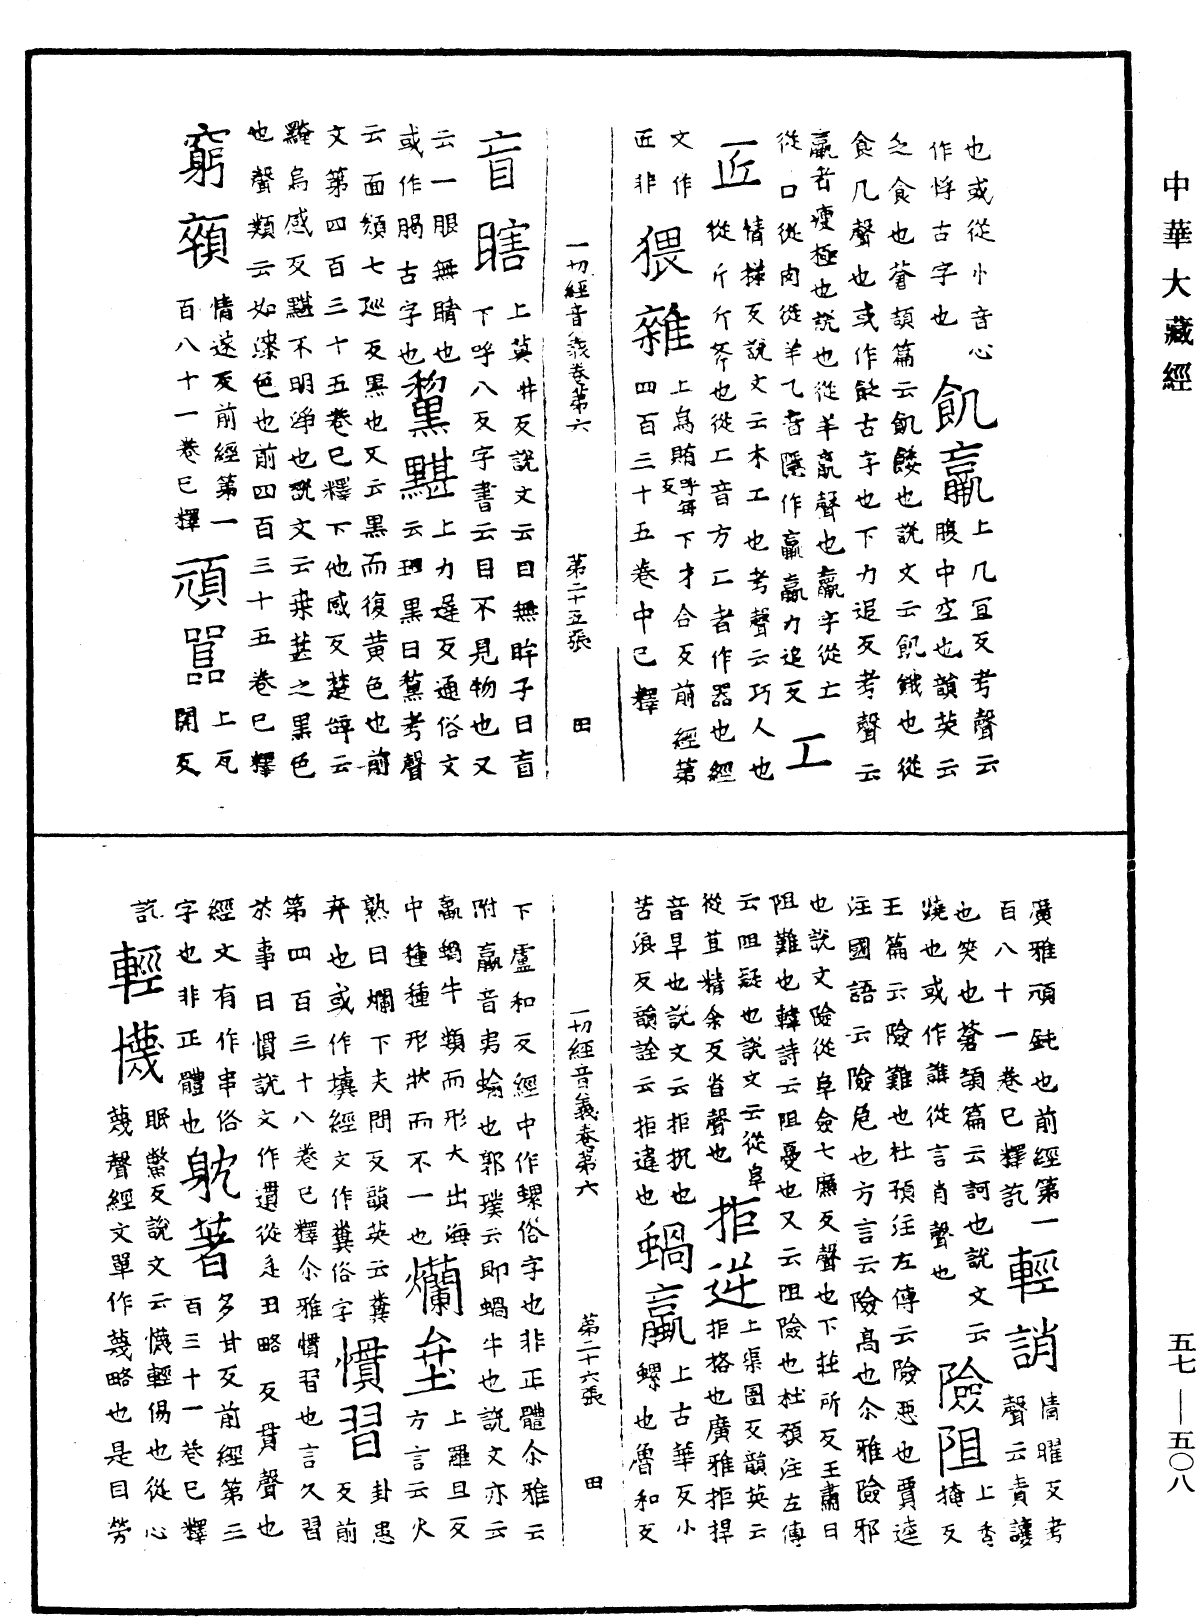 中華大藏經
也或從小音心飢羸上几宜反考聲云
作悸古字也腹中空也韻英云
乏食也蒼頡篇云飢餧也說文云飢餓也從
食几聲也或作飢古字也下力追反考聲云
羸者瘦極也說也從羊𣎆聲也𣎆字從士
從口從肉從羊乙音隱作羸羸力追反工
匠情樣反說文云木工也考聲云巧人也
從斤斤斧也從工音方工者作器也經
文作
匠非猥雜上烏賄反呼每下才合反前經第
四百三十五卷中已釋
一切經音義卷第六 第二十五張 田
盲瞎上莫井反說文云目無眸子曰盲
下呼八反字書云目不見物也又
云一眼無睛也
或作䀣古字也黧黮上力遲反通俗文
云班黑曰黧考聲
云面頯七巡反黑也又云黑而復黃色也前
文第四百三十五卷已釋下他感反楚辭云
黤烏感反黮不明淨也說文云桒葚之黑色
也聲類云如漆色也前四百三十五卷已釋
窮顇情遂反前經第一
百八十一卷已釋頑嚚上瓦
關反
廣雅頑鈍也前經第一
百八十一卷已釋訖輕誚情曜反考
聲云責讓
也笑也蒼頡篇云訶也說文云
燒也或作譙從言肖聲也險阻上香
掩反
王篇云險難也杜預注左傳云險惡也賈逵
注國語云險危也方言云險高也尒雅險邪
也說文險從阜僉七廉反聲也下莊所反王肅曰
阻難也韓詩云阻憂也又云阻險也杜預注左傳
云阻疑也說文云從阜
從苴精余反省聲也拒逆上渠圄反韻英云
拒格也廣雅拒捍
音旱也說文云拒抗也
苦浪反韻詮云拒違也蝸蠃上古華反小
螺也魯和反
一切經音義卷第六 第二十六張 田
下盧和反經中作螺俗字也非正體尒雅云
附蠃音夷蝓也郭璞云即蝸牛也說文亦云
蠃蝸牛類而形大出海
中種種形狀而不一也爛坌上羅旦反
方言云火
熟曰爛下夫問反韻英云糞
弃也或作墳經文作糞俗字慣習卦患
反前
第四百三十八卷已釋尒雅慣習也言久習
於事曰慣說文作遺從辵丑略反貫聲也
經文有作串俗
字也非正體也躭著多甘反前經第三
百三十一卷已釋
訖輕懱眠鱉反說文云懱輕傷也從心
蔑聲經文單作蔑略也是目勞
五七—五〇八